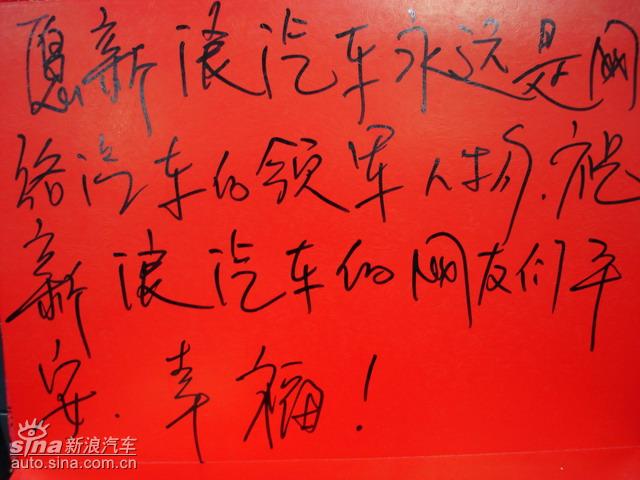 愿新浪汽车永远是网
络汽车的领军人物.祝
新浪汽车的网友们平
安.幸福!
sina新浪汽车
auto.sina.com.cn